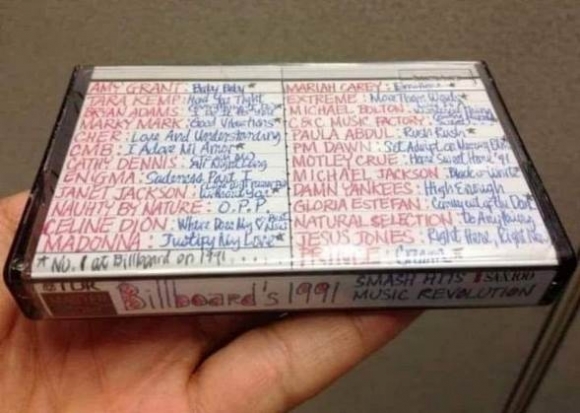 AMY GRANT : Baby Baby *
TARA KEMP : Hold You Tight
BRYAN ADAMS :
MARKY MARK : Good Vibrations *
CHER : Love And Understanding
CMB : I Adore Mi Amor *
CATHY DENNIS :
ENIGMA : Sadeness Part I
JANET JACKSON :
NAUHTY BY NATURE : O.P.P.
CELINE DION : Where Does My
MADONNA : Justify My Love *
* No. 1 at Billboard on 1991 . . . .
MARIAH CAREY : *
EXTREME : More Than Words *
MICHAEL BOLTON :
C&C MUSIC FACTORY :
PAULA ABDUL : Rush Rush *
PM DAWN : Set Adrift on Memory
MOTLEY CRUE : Home Sweet Home '91
MICHAEL JACKSON : Black or White
DAMN YANKEES : High Enough
GLORIA ESTEFAN : Coming out of the Dark
NATURAL SELECTION : Do Anything
JESUS JONES : Right Here, Right Now
PRINCE : Cream *
TDK
Billboard's 1991
SMASH HITS
MUSIC REVOLUTION